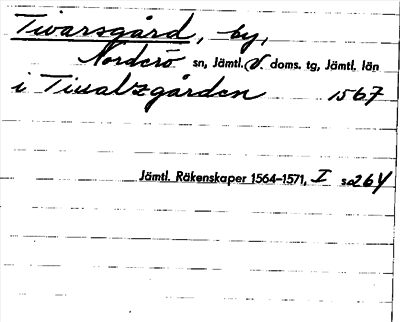 Tivarsgård, by,
Norderö sn, Jämtl. v. doms. tg, Jämtl. län
i Tiualzgården 1567
Jämtl. Räkenskaper 1564–1571, I s. 264